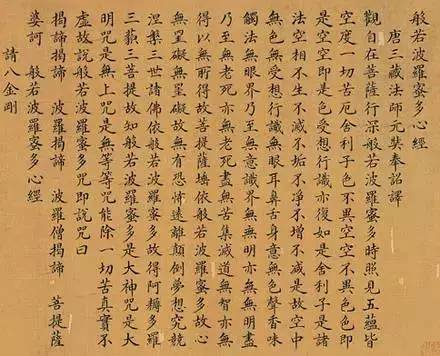 般若波羅蜜多心經
唐三藏法師元奘奉詔譯
觀自在菩薩行深般若波羅蜜多時照見五蘊皆
空度一切苦厄舍利子色不異空空不異色色即
是空空即是色受想行識亦復如是舍利子是諸
法空相不生不滅不垢不淨不增不減是故空中
無色無受想行識無眼耳鼻舌身意無色聲香味
觸法無眼界乃至無意識界無無明亦無無明盡
乃至無老死亦無老死盡無苦集滅道無智亦無
得以無所得故菩提薩埵依般若波羅蜜多故心
無罣礙無罣礙故無有恐怖遠離顛倒夢想究竟
涅槃三世諸佛依般若波羅蜜多故得阿耨多羅
三藐三菩提故知般若波羅蜜多是大神咒是大
明咒是無上咒是無等等咒能除一切苦真實不
虛故說般若波羅蜜多咒即說咒曰
揭諦揭諦 波羅揭諦 波羅僧揭諦 菩提薩
婆訶 般若波羅蜜多心經
請八金剛